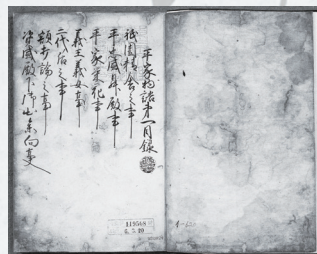 平家物語第一目録
祇園精舎之事
平忠盛昇殿事
平家栄花事
義王義女事
二代后之事
額打論之事
資盛殿下御出参向事
119568
6.5.10